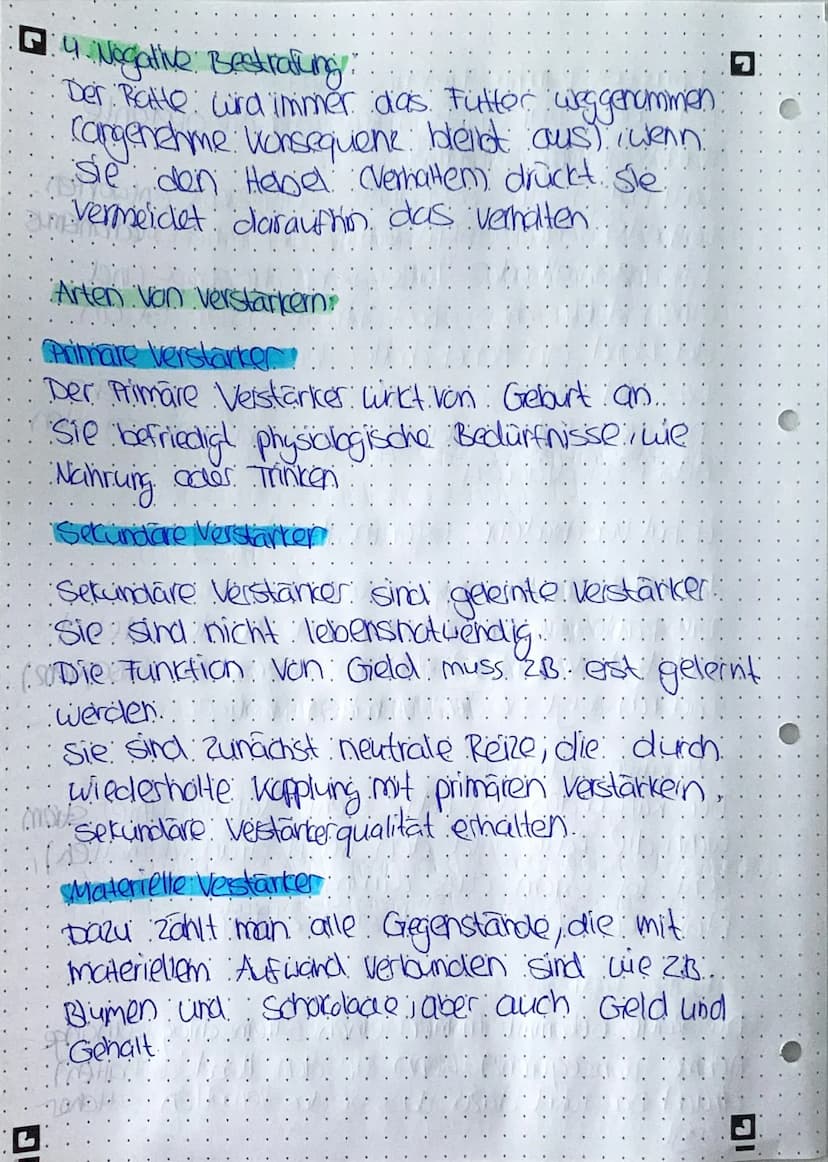 4. Negative Bestrafung:
Der Ratte wird immer das Futter weggenommen
(angenehme Konsequenz bleibt aus), wenn
sie den Hebel (Verhalten) drückt. Sie
vermeidet daraufhin das Verhalten
Arten von Verstärkern:
Primäre Verstärker
Der Primäre Verstärker wirkt von Geburt an.
Sie befriedigt physiologische Bedürfnisse, wie
Nahrung oder Trinken
Sekundäre Verstärker
Sekundäre Verstärker sind gelernte Verstärker.
Sie sind nicht lebensnotwendig.
Die Funktion von Geld muss zB. erst gelernt
werden.
Sie sind zunächst neutrale Reize, die durch
wiederholte Kopplung mit primären Verstärkern,
sekundäre Verstärkerqualität erhalten.
Materielle Verstärker
Dazu zählt man alle Gegenstände, die mit
materiellem Aufwand verbunden sind wie z.B.
Blumen und Schokolade, aber auch Geld und
Gehalt